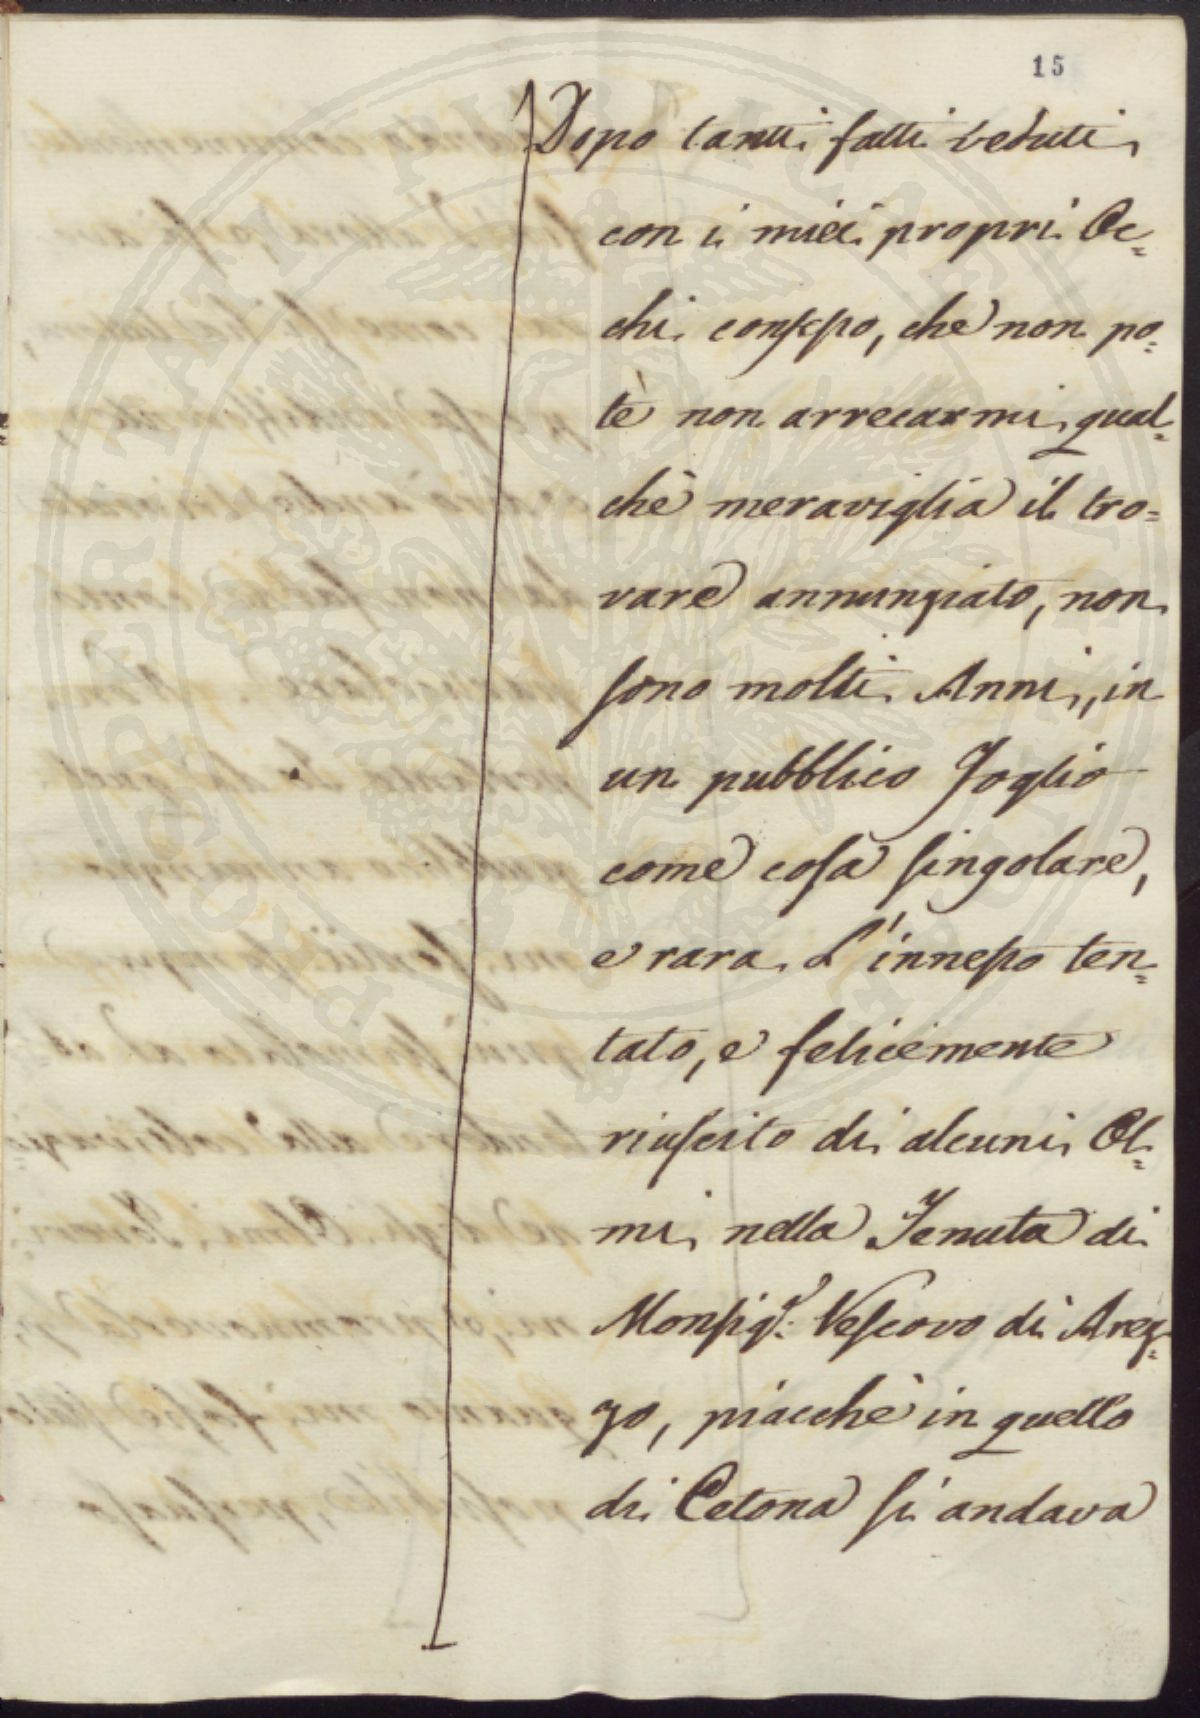 15
Dopo tanti fatti veduti
con i miei propri Oc=
chi confesso, che non po=
tè non arrecarmi qual=
chè meraviglia il tro=
vare annunziato, non
sono molti Anni, in
un pubblico Foglio
come cosa singolare,
e rara L'innesto ten=
tato, e felicemente
riuscito di alcuni Ol=
mi nella Tenuta di
Monsig.r Vescovo di Arez=
zo, giacchè in quello
di Cetona si andava